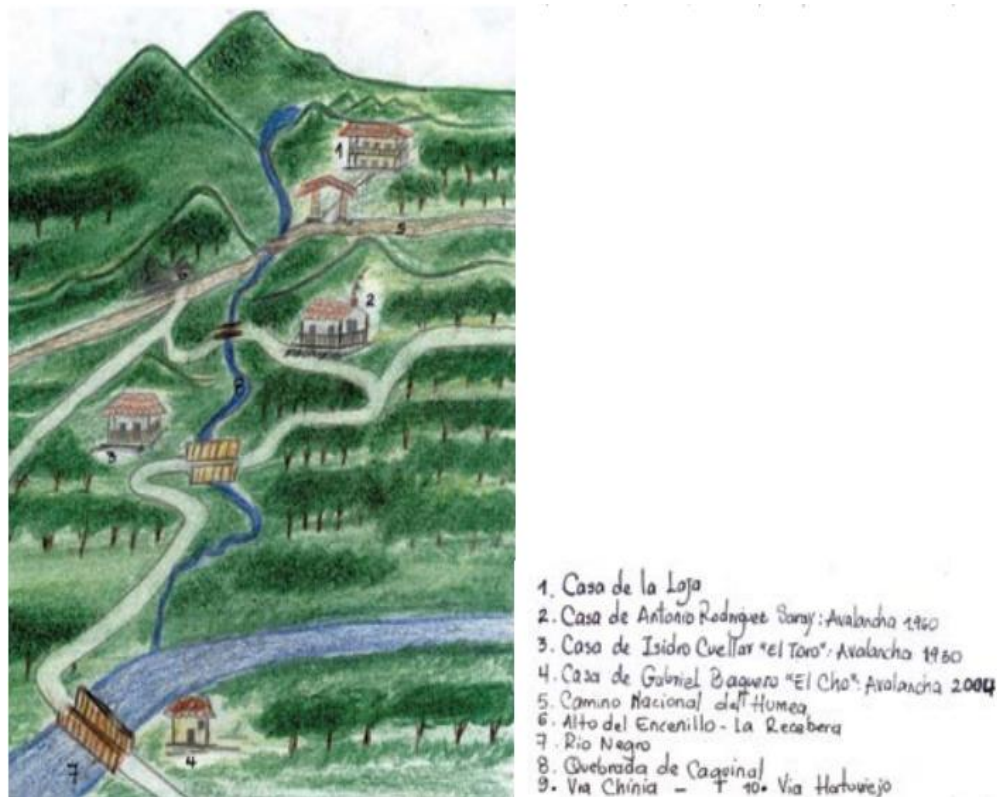 1
5
2
6
8
3
7
4
1. Casa de la Loja
2. Casa de Antonio Rodriguez Saray: Avalancha 1960
3. Casa de Isidro Cuellar "el Toro": Avalancha 1960
4. Casa de Gabriel Baquero "El Cho": Avalancha 2004
5. Camino Nacional del Humea
6. Alto del Encenillo - La Recebera
7. Rio Negro
8. Quebrada de Caquinal
9. Via Chinia - 10. Via Hatoviejo